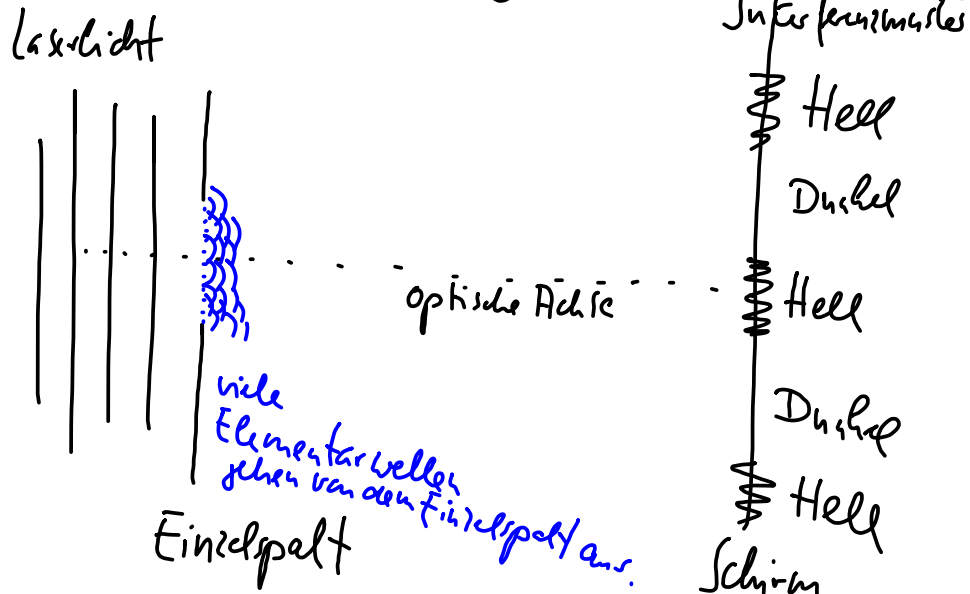 Laserlicht
Interferenzmuster
Hell
Dunkel
Hell
optische Achse
Dunkel
Hell
viele
Elementarwellen
gehen von dem Einzelspalt aus.
Einzelspalt
Schirm